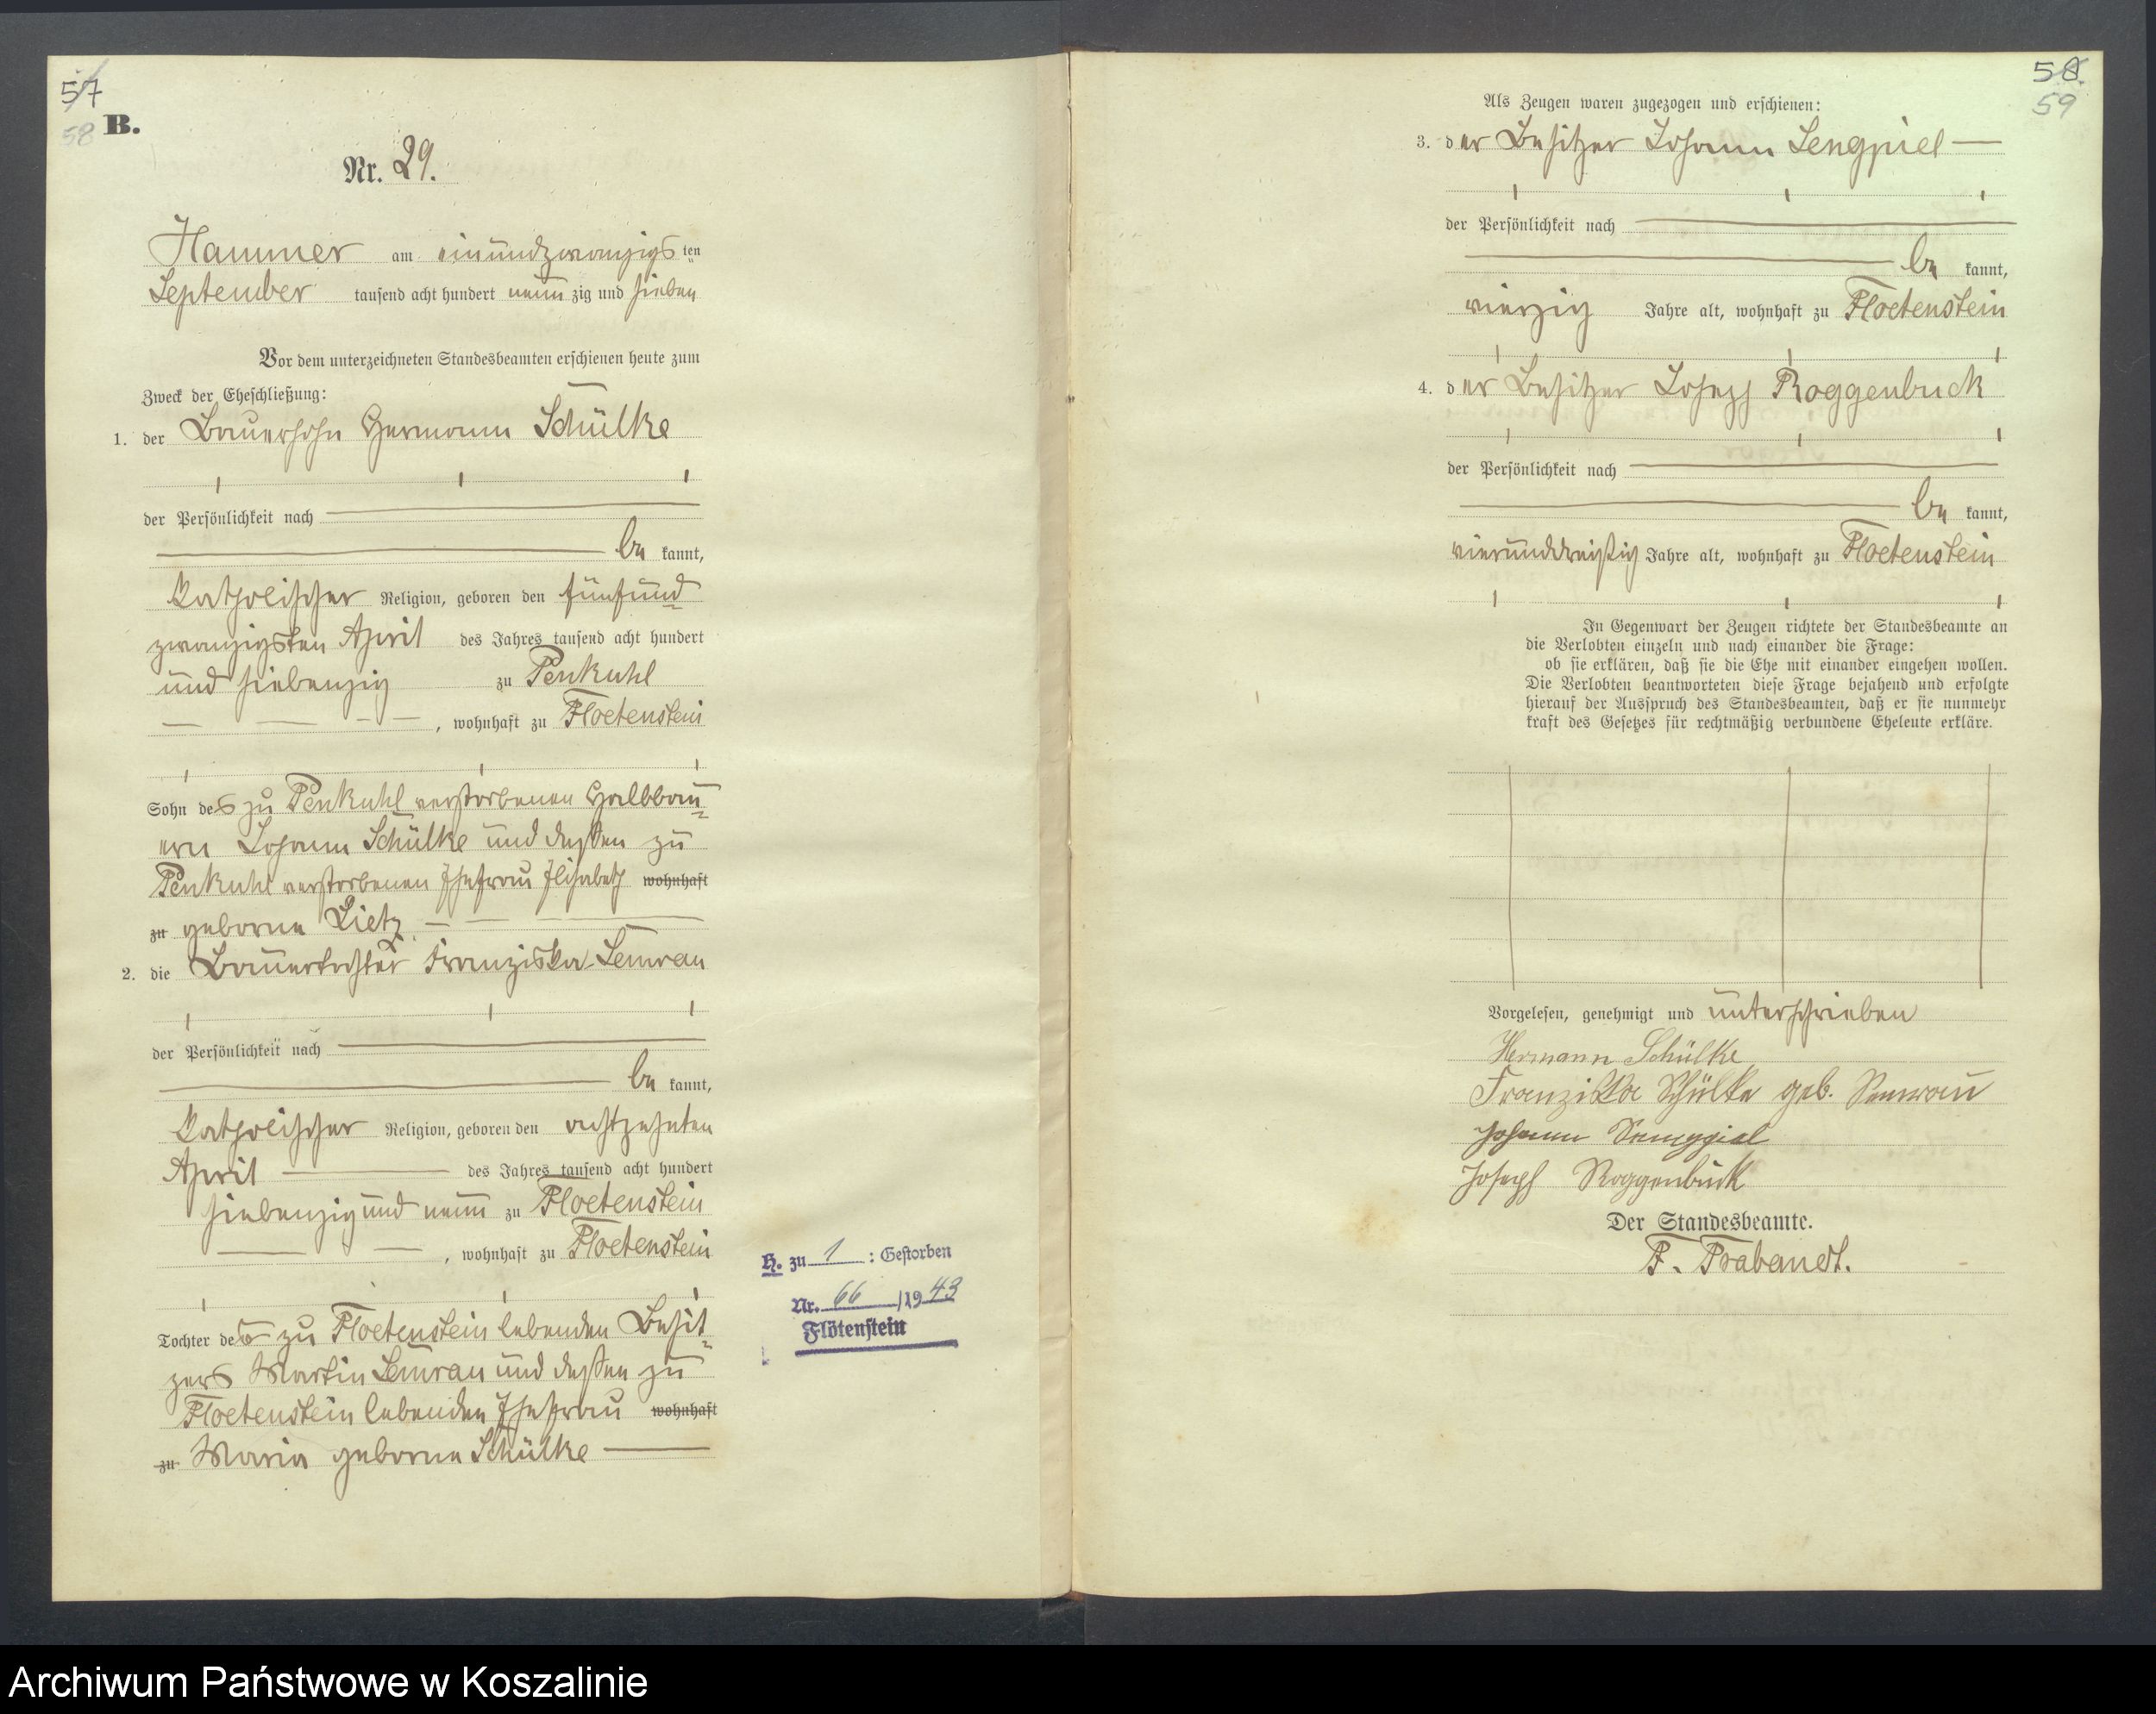 57
58
B.
Nr. 29.
Hammer am einundzwanzigsten
September tausend acht hundert neunzig und sieben
Vor dem unterzeichneten Standesbeamten erschienen heute zum
Zweck der Eheschließung:
1. der Bauersohn Hermann Schülke
der Persönlichkeit nach
bekannt,
katholischer Religion, geboren den fünfund
zwanzigsten April des Jahres tausend acht hundert
und siebenzig zu Penkuhl
, wohnhaft zu Floetenstein
Sohn des zu Penkuhl verstorbenen Halbbau
ern Johann Schülke und dessen zu
Penkuhl verstorbenen Ehefrau Elisabeth wohnhaft
zu geborne Lietz
2. die Bauertochter Franziska Semrau
der Persönlichkeit nach
bekannt,
katholischer Religion, geboren den achtzehnten
April des Jahres tausend acht hundert
siebenzig und neun zu Floetenstein
, wohnhaft zu Floetenstein
Tochter des zu Floetenstein lebenden Besit
zers Martin Semrau und dessen zu
Floetenstein lebenden Ehefrau wohnhaft
zu Maria geborne Schülke
H. zu 1 : Gestorben
Nr. 66 /1943
Flötenstein
58.
59
Als Zeugen waren zugezogen und erschienen:
3. der Besitzer Johann Sengpiel
der Persönlichkeit nach
bekannt,
vierzig Jahre alt, wohnhaft zu Floetenstein
4. der Besitzer Joseph Roggenbuck
der Persönlichkeit nach
bekannt,
vierunddreißig Jahre alt, wohnhaft zu Floetenstein
In Gegenwart der Zeugen richtete der Standesbeamte an
die Verlobten einzeln und nach einander die Frage:
ob sie erklären, daß sie die Ehe mit einander eingehen wollen.
Die Verlobten beantworteten diese Frage bejahend und erfolgte
hierauf der Ausspruch des Standesbeamten, daß er sie nunmehr
kraft des Gesetzes für rechtmäßig verbundene Eheleute erkläre.
Vorgelesen, genehmigt und unterschrieben
Hermann Schülke
Franziska Schülke geb. Semrau
Johann Sengpiel
Joseph Roggenbuck
Der Standesbeamte.
F. Prabandt.
Archiwum Państwowe w Koszalinie